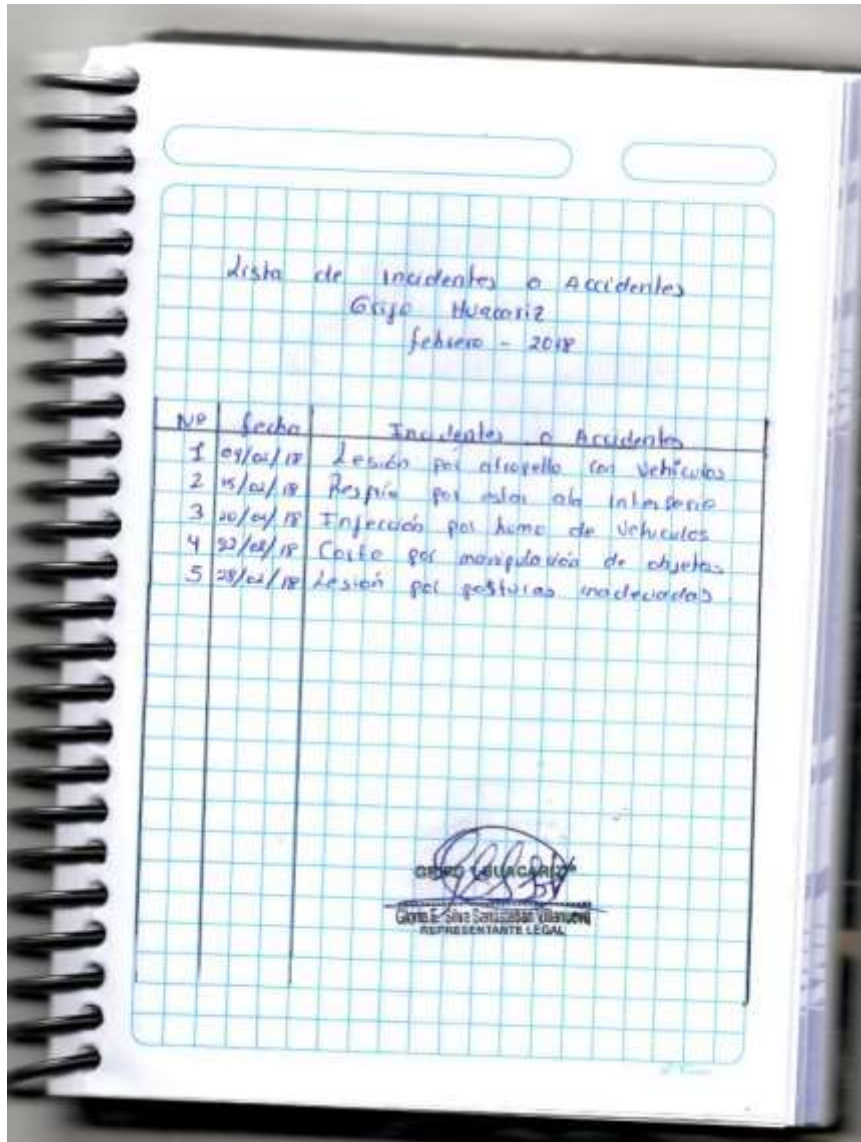 Lista de Incidentes o Accidentes
Grifo Huacariz
febrero - 2018
Nº fecha Incidentes o Accidentes
1 09/02/18 Lesión por atropello con vehículos
2 15/02/18 Respío por estar ala interperie
3 20/02/18 Infección por humo de vehículos
4 22/02/18 Corte por manipulación de objetos
5 28/02/18 Lesión por posturas inadecuadas
GRIFO HUACARIZ
Gloria E. Silva Santisteban Villanueva
REPRESENTANTE LEGAL